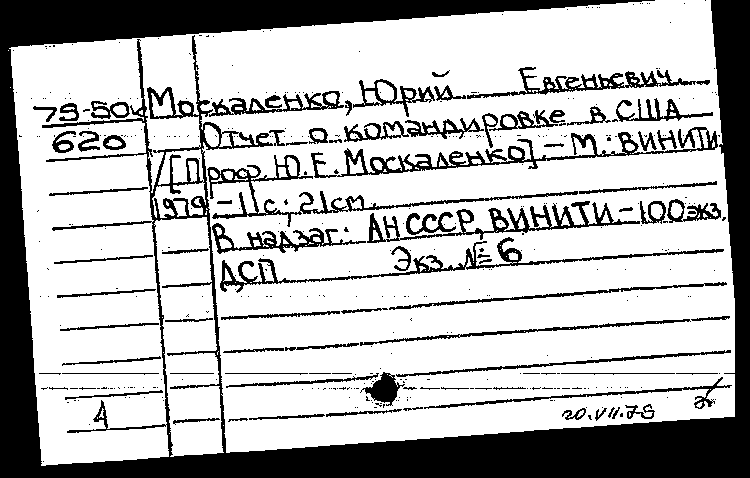 79-50ч Москаленко, Юрий Евгеньевич.
620 Отчет о командировке в США
/ [Проф. Ю. Е. Москаленко]. - М.: ВИНИТИ,
1979. - 11 с.; 21 см.
В надзаг.: АН СССР, ВИНИТИ. - 100 экз.
ДСП. Экз. № 6
4 20.VII.79